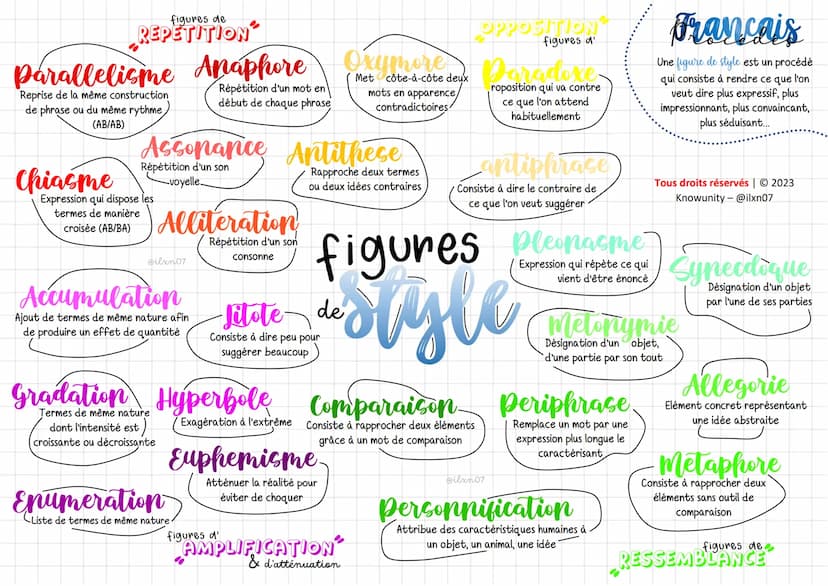 figures de
RÉPÉTITION
Parallelisme
Reprise de la même construction
de phrase ou du même rythme
(AB/AB)
Anaphore
Répétition d'un mot en
début de chaque phrase
Assonance
Répétition d'un son
voyelle
Chiasme
Expression qui dispose les
termes de manière
croisée (AB/BA)
Alliteration
Répétition d'un son
consonne
@ilxn07
OPPOSITION
figures d'
Oxymore
Met côte-à-côte deux
mots en apparence
contradictoires
Paradoxe
roposition qui va contre
ce que l'on attend
habituellement
Antithese
Rapproche deux termes
ou deux idées contraires
antiphrase
Consiste à dire le contraire de
ce que l'on veut suggérer
Français
Procédés
Une figure de style est un procédé
qui consiste à rendre ce que l'on
veut dire plus expressif, plus
impressionnant, plus convaincant,
plus séduisant...
Tous droits réservés | © 2023
Knowunity – @ilxn07
figures
de style
Pleonasme
Expression qui répète ce qui
vient d'être énoncé
Synecdoque
Désignation d'un objet
par l'une de ses parties
Metonymie
Désignation d'un objet,
d'une partie par son tout
Accumulation
Ajout de termes de même nature afin
de produire un effet de quantité
Litote
Consiste à dire peu pour
suggérer beaucoup
Gradation
Termes de même nature
dont l'intensité est
croissante ou décroissante
Hyperbole
Exagération à l'extrême
Euphemisme
Atténuer la réalité pour
éviter de choquer
Enumeration
Liste de termes de même nature
figures d'
AMPLIFICATION
& d'atténuation
Comparaison
Consiste à rapprocher deux éléments
grâce à un mot de comparaison
Periphrase
Remplace un mot par une
expression plus longue le
caractérisant
Allegorie
Elément concret représentant
une idée abstraite
Metaphore
Consiste à rapprocher deux
éléments sans outil de
comparaison
@ilxn07
Personnification
Attribue des caractéristiques humaines à
un objet, un animal, une idée
figures de
RESSEMBLANCE